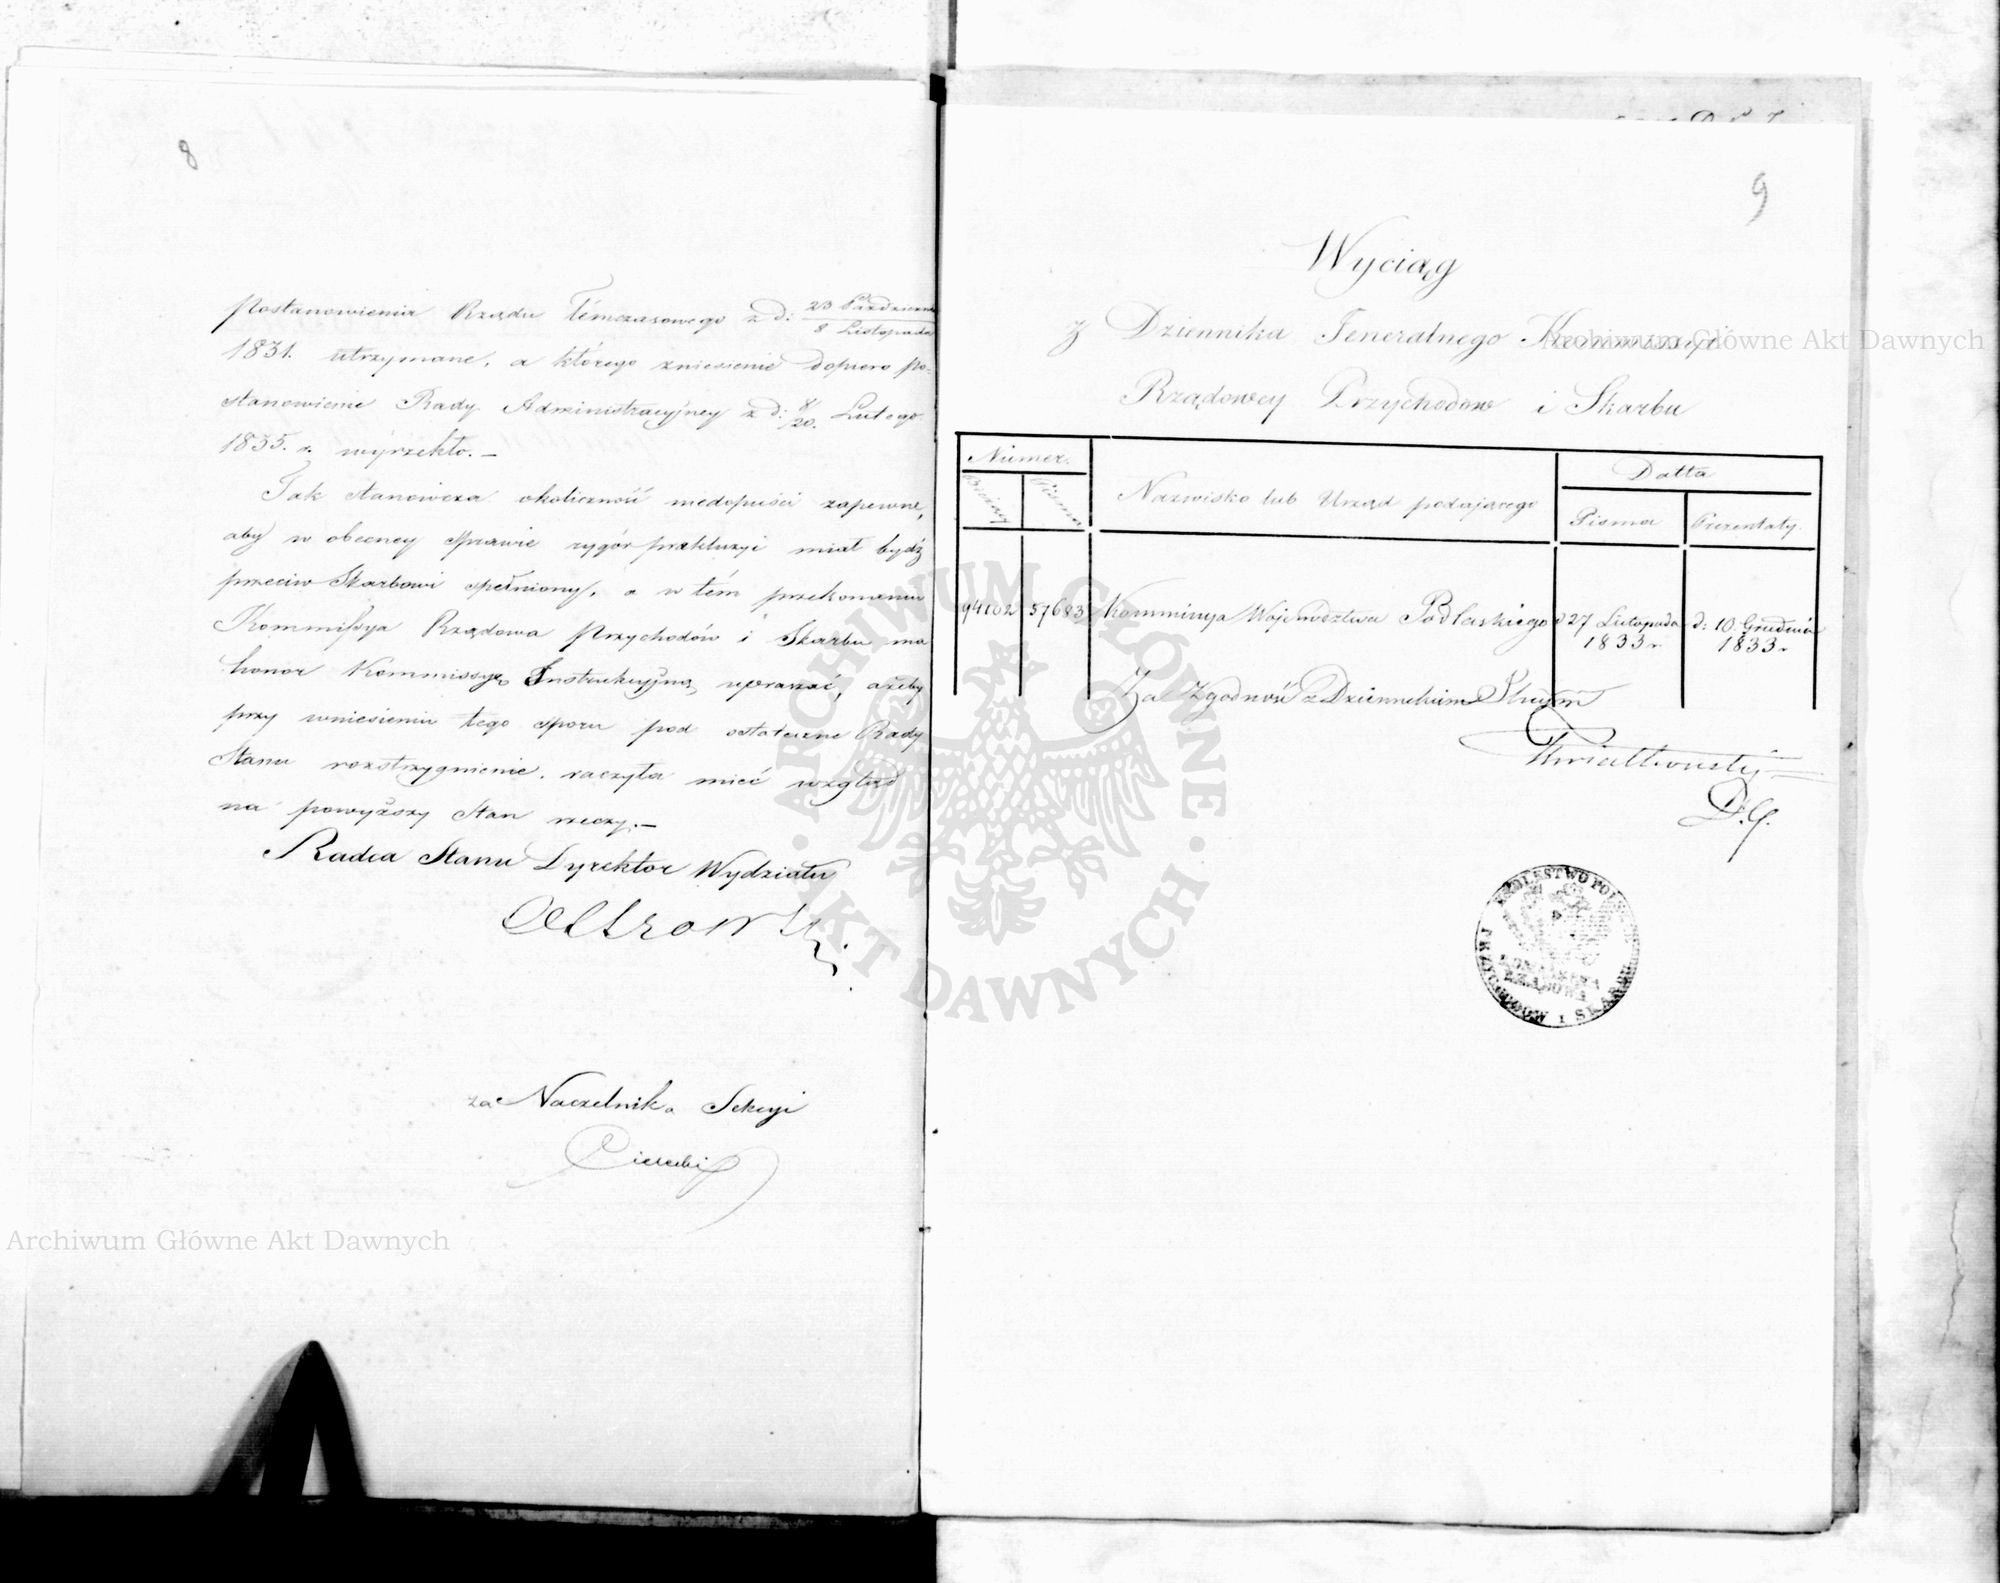 8
Postanowienia Rządu Témczasowego z d: 23 Październ: / 8 Listopada
1831. utrzymane, a którego zniesienie dopiero Po-
stanowienie Rady Administracyjney z d: 8/20. Lutego
1835. r. wyrzekło. –
Tak stanowcza okoliczność niedopuści zapewne,
aby w obecney sprawie rygór prekluzyi miał bydź
przeciw Skarbowi spełniony, a w tém przekonaniu
Kommissya Rządowa Przychodów i Skarbu ma
honor Kommissyę Instrukcyjną upraszać, ażeby
przy wniesieniu tego sporu pod ostateczne Rady
Stanu rozstrzygnienie, raczyła mieć wzgląd
na powyższy Stan rzeczy. –
Radca Stanu Dyrektor Wydziału
Ostrowski
za Naczelnika Sekcyi
9
Wyciąg
z Dziennika Generalnego Kommissyi
Rządowey Przychodow i Skarbu
Numer.
Datta
Pisma
Nazwisko lub Urząd podającego
Pisma
Prezentaty.
94102
57683
Kommissya Województwa Podlaskiego
d 27 Listopada
1833 r.
d: 10 Grudnia
1833 r.
Za Zgodność z Dziennikiem
Kwiatkowski
D. G.
KRÓLESTWO POLSKIE
KOMMISSYA
RZĄDOWA
PRZYCHODOW I SKARBU
ARCHIWUM GŁÓWNE · AKT DAWNYCH ·
Archiwum Główne Akt Dawnych
Archiwum Główne Akt Dawnych